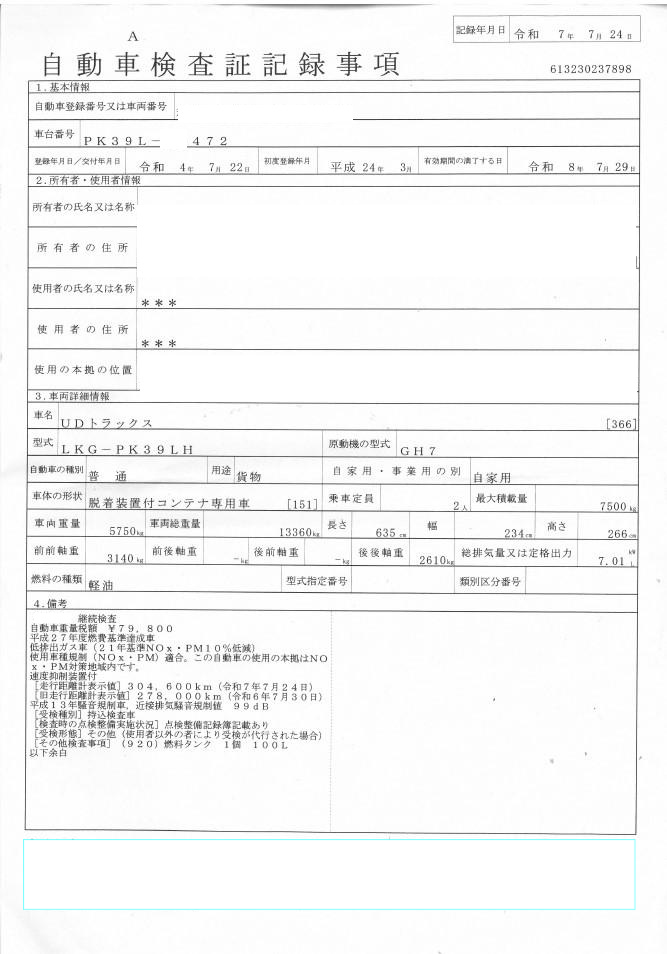 記録年月日 令和 7年 7月 24日
A
自動車検査証記録事項
613230237898
1.基本情報
自動車登録番号又は車両番号
車台番号 PK39L- 472
登録年月日/交付年月日 令和 4年 7月 22日 初度登録年月 平成 24年 3月 有効期間の満了する日 令和 8年 7月 29日
2.所有者・使用者情報
所有者の氏名又は名称
所有者の住所
使用者の氏名又は名称 ***
使用者の住所 ***
使用の本拠の位置
3.車両詳細情報
車名 UDトラックス [366]
型式 LKG-PK39LH 原動機の型式 GH7
自動車の種別 普通 用途 貨物 自家用・事業用の別 自家用
車体の形状 脱着装置付コンテナ専用車 [151] 乗車定員 2人 最大積載量 7500kg
車両重量 5750kg 車両総重量 13360kg 長さ 635cm 幅 234cm 高さ 266cm
前前軸重 3140kg 前後軸重 -kg 後前軸重 -kg 後後軸重 2610kg 総排気量又は定格出力 7.01 kW L
燃料の種類 軽油 型式指定番号 類別区分番号
4.備考
継続検査
自動車重量税額 ¥79,800
平成27年度燃費基準達成車
低排出ガス車(21年基準NOx・PM10%低減)
使用車種規制(NOx・PM)適合。この自動車の使用の本拠はNO
x・PM対策地域内です。
速度抑制装置付
[走行距離計表示値]304,600km(令和7年7月24日)
[旧走行距離計表示値]278,000km(令和6年7月30日)
平成13年騒音規制車,近接排気騒音規制値 99dB
[受検種別]持込検査車
[検査時の点検整備実施状況]点検整備記録簿記載あり
[受検形態]その他(使用者以外の者により受検が代行された場合)
[その他検査事項](920)燃料タンク 1個 100L
以下余白